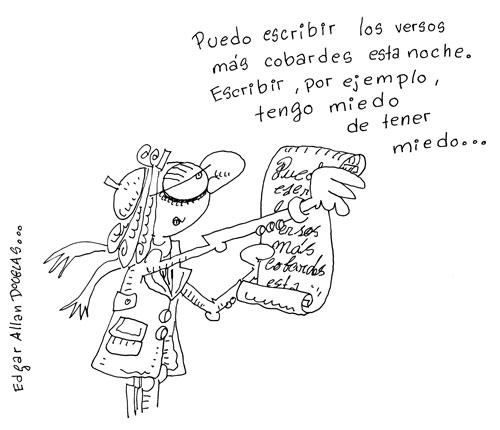 Puedo escribir los versos
más cobardes esta noche.
Escribir, por ejemplo,
tengo miedo
de tener
miedo...
Pued
escr
l
versos
más
cobardes
esta
Edgar Allan DOUGLAS...